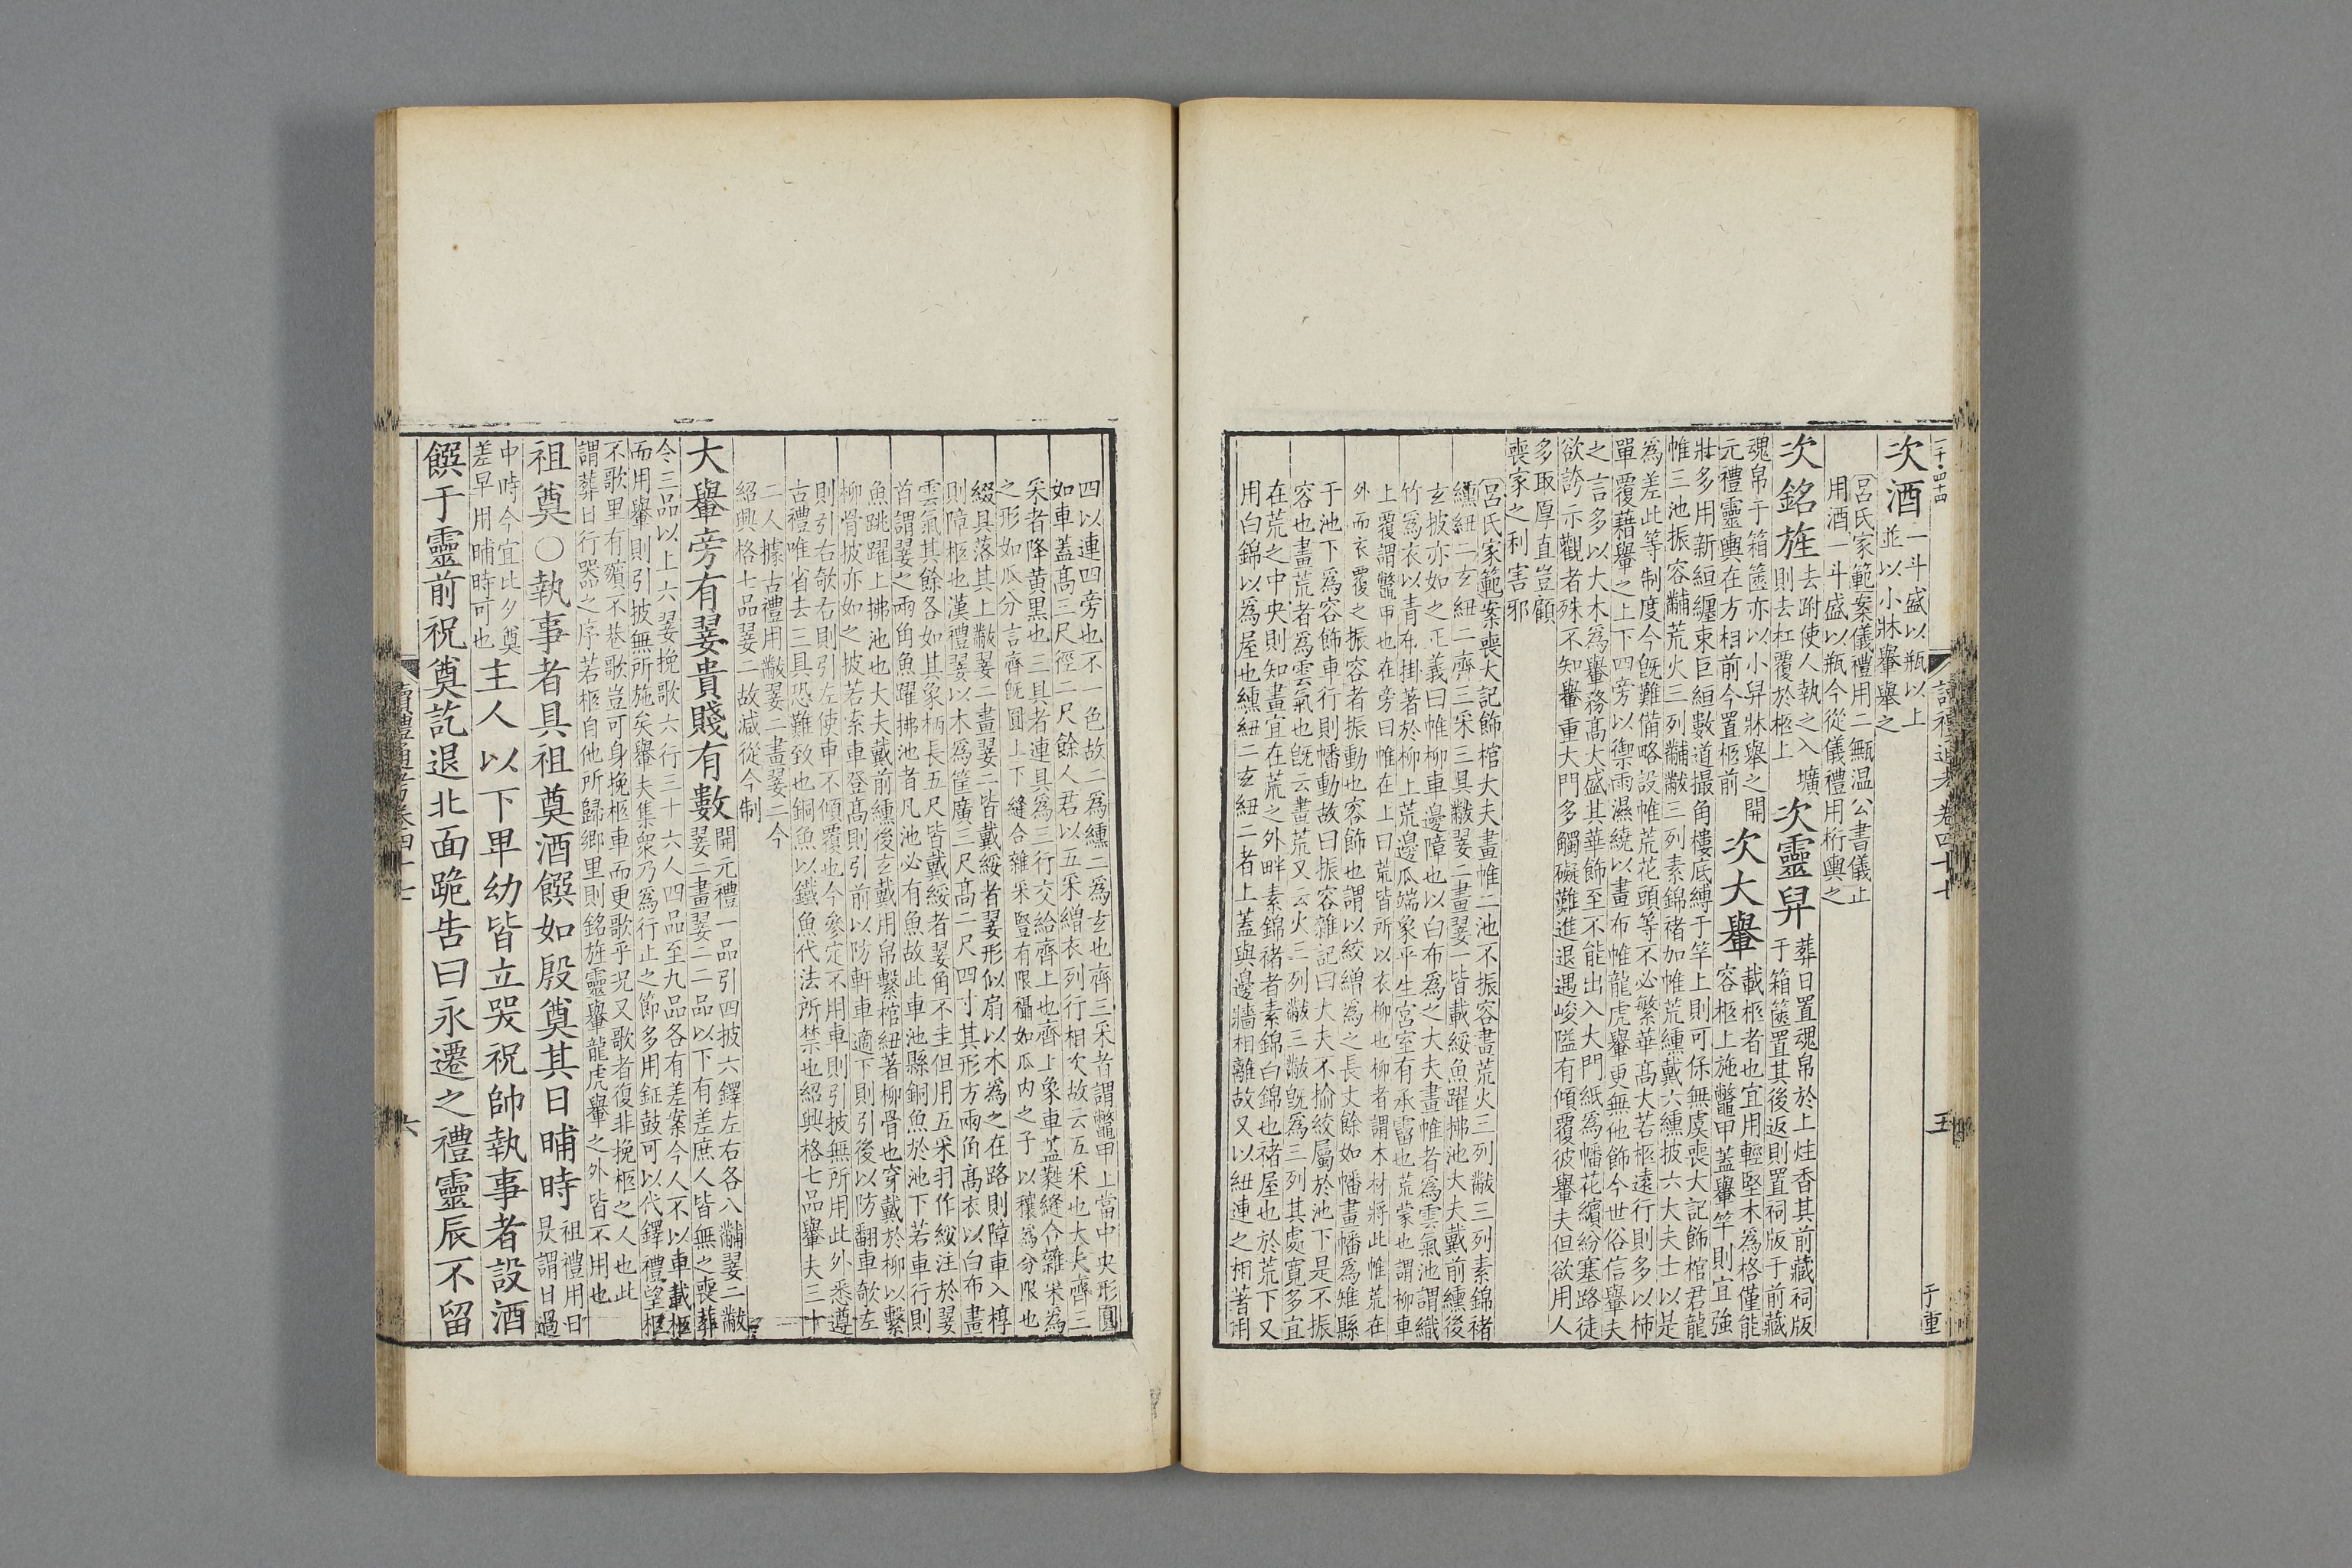 一千四十四
讀禮通考卷四十七
五
于重
次酒一斗盛以瓶以上
並以小牀轝舉之
呂氏家範案儀禮用二甒溫公書儀止
用酒一斗盛以瓶今從儀禮用桁輿之
次銘旌去跗使人執之入壙
則去杠覆於柩上
次靈舁葬日置魂帛於上炷香其前藏祠版
于箱篋置其後返則置祠版于前藏
魂帛于箱篋亦以小舁牀舉之開
元禮靈輿在方相前今置柩前
次大轝載柩者也宜用輕堅木爲格僅能
容柩上施鼈甲蓋轝竿則宜強
壯多用新絙纏束巨絙數道撮角樓底縛于竿上則可保無虞喪大記飾棺君龍
帷三池振容黼荒火三列黼黻三列素錦褚加帷荒纁戴六纁披六大夫士以是
爲差此等制度今旣難備略設帷荒花頭等不必繁華髙大若柩遠行則多以柿
單覆藉轝之上下四旁以禦雨濕繞以畫布帷龍虎轝更無他飾今世俗信轝夫
之言多以大木爲轝務髙大盛其華飾至不能出入大門紙爲幡花繽紛塞路徒
欲誇示觀者殊不知轝重大門多觸礙難進退遇峻隘有傾覆彼轝夫但欲用人
多取厚直豈顧
喪家之利害邪
呂氏家範案喪大記飾棺大夫畫帷二池不振容畫荒火三列黻三列素錦褚
纁紐二玄紐二齊三采三具黻翣二畫翣一皆載綏魚躍拂池大夫戴前纁後
玄披亦如之正義曰帷柳車邊障也以白布爲之大夫畫帷者爲雲氣池謂織
竹爲衣以青布掛著於柳上荒邊瓜端象平生宮室有承霤也荒蒙也謂柳車
上覆謂鼈甲也在旁曰帷在上曰荒皆所以衣柳也柳者謂木材將此帷荒在
外而衣覆之振容者振動也容飾也謂以絞繒爲之長丈餘如幡畫幡爲雉縣
于池下爲容飾車行則幡動故曰振容雜記曰大夫不揄絞屬於池下是不振
容也畫荒者爲雲氣也旣云畫荒又云火三列黻三黻旣爲三列其處寬多宜
在荒之中央則知畫宜在荒之外畔素錦褚者素錦白錦也褚屋也於荒下又
用白錦以爲屋也纁紐二玄紐二者上蓋與邊牆相離故又以紐連之相著用
四以連四旁也不一色故二爲纁二爲玄也齊三采者謂鼈甲上當中央形圓
如車蓋髙三尺徑二尺餘人君以五采繒衣列行相次故云五采也大夫齊三
采者降黄黒也三具者連具爲三行交給齊上也齊上象車蓋蕤縫合雜采爲
之形如瓜分言齊旣圓上下縫合雜采豎有限襵如瓜内之子以穰爲分限也
綴具落其上黻翣二畫翣二皆戴綏者翣形似扇以木爲之在路則障車入椁
則障柩也漢禮翣以木爲筐廣三尺髙二尺四寸其形方兩角髙衣以白布畫
雲氣其餘各如其象柄長五尺皆戴綏者翣角不圭但用五采羽作綏注於翣
首謂翣之兩角魚躍拂池者凡池必有魚故此車池縣銅魚於池下若車行則
魚跳躍上拂池也大夫戴前纁後玄戴用帛繫棺紐著柳骨也穿戴於柳以繫
柳骨披亦如之披若索車登髙則引前以防軒車適下則引後以防翻車欹左
則引右欹右則引左使車不傾覆也今參定不用車則引披無所用此外悉遵
古禮唯省去三具恐難致也銅魚以鐵魚代法所禁也紹興格七品轝夫三十
二人據古禮用黻翣二畫翣二今
紹興格七品翣二故减從今制
大轝旁有翣貴賤有數開元禮一品引四披六鐸左右各八黼翣二黻
翣二畫翣二二品以下有差庶人皆無之喪葬
令三品以上六翣挽歌六行三十六人四品至九品各有差案今人不以車載柩
而用轝則引披無所施矣轝夫集衆乃爲行止之節多用鉦鼓可以代鐸禮望柩
不歌里有殯不巷歌豈可身挽柩車而更歌乎况又歌者復非挽柩之人也此
謂葬日行哭之序若柩自他所歸鄉里則銘旌靈轝龍虎轝之外皆不用也
祖奠○執事者具祖奠酒饌如殷奠其日晡時祖禮用日
昃謂日過
中時今宜比夕奠
差早用晡時可也主人以下卑幼皆立哭祝帥執事者設酒
饌于靈前祝奠訖退北面跪告曰永遷之禮靈辰不留
讀禮通考卷四十七
六